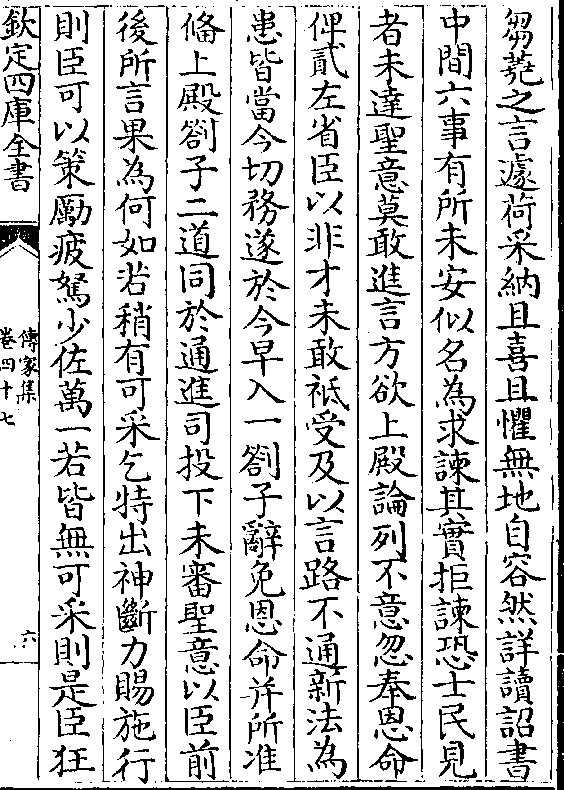 芻蕘之言遽荷采納且喜且懼無地自容然詳讀詔書
中間六事有所未安似名為求諫其實拒諫恐士民見
者未達聖意莫敢進言方欲上殿論列不意忽奉恩命
俾貳左省臣以非才未敢祗受及以言路不通新法為
患皆當今切務遂於今早入一劄子辭免恩命并所准
備上殿劄子二道同於通進司投下未審聖意以臣前
後所言果為何如若稍有可采乞特出神斷力賜施行
則臣可以策厲疲駑少佐萬一若皆無可采則是臣狂
欽定四庫全書
傳家集
卷四十七
六